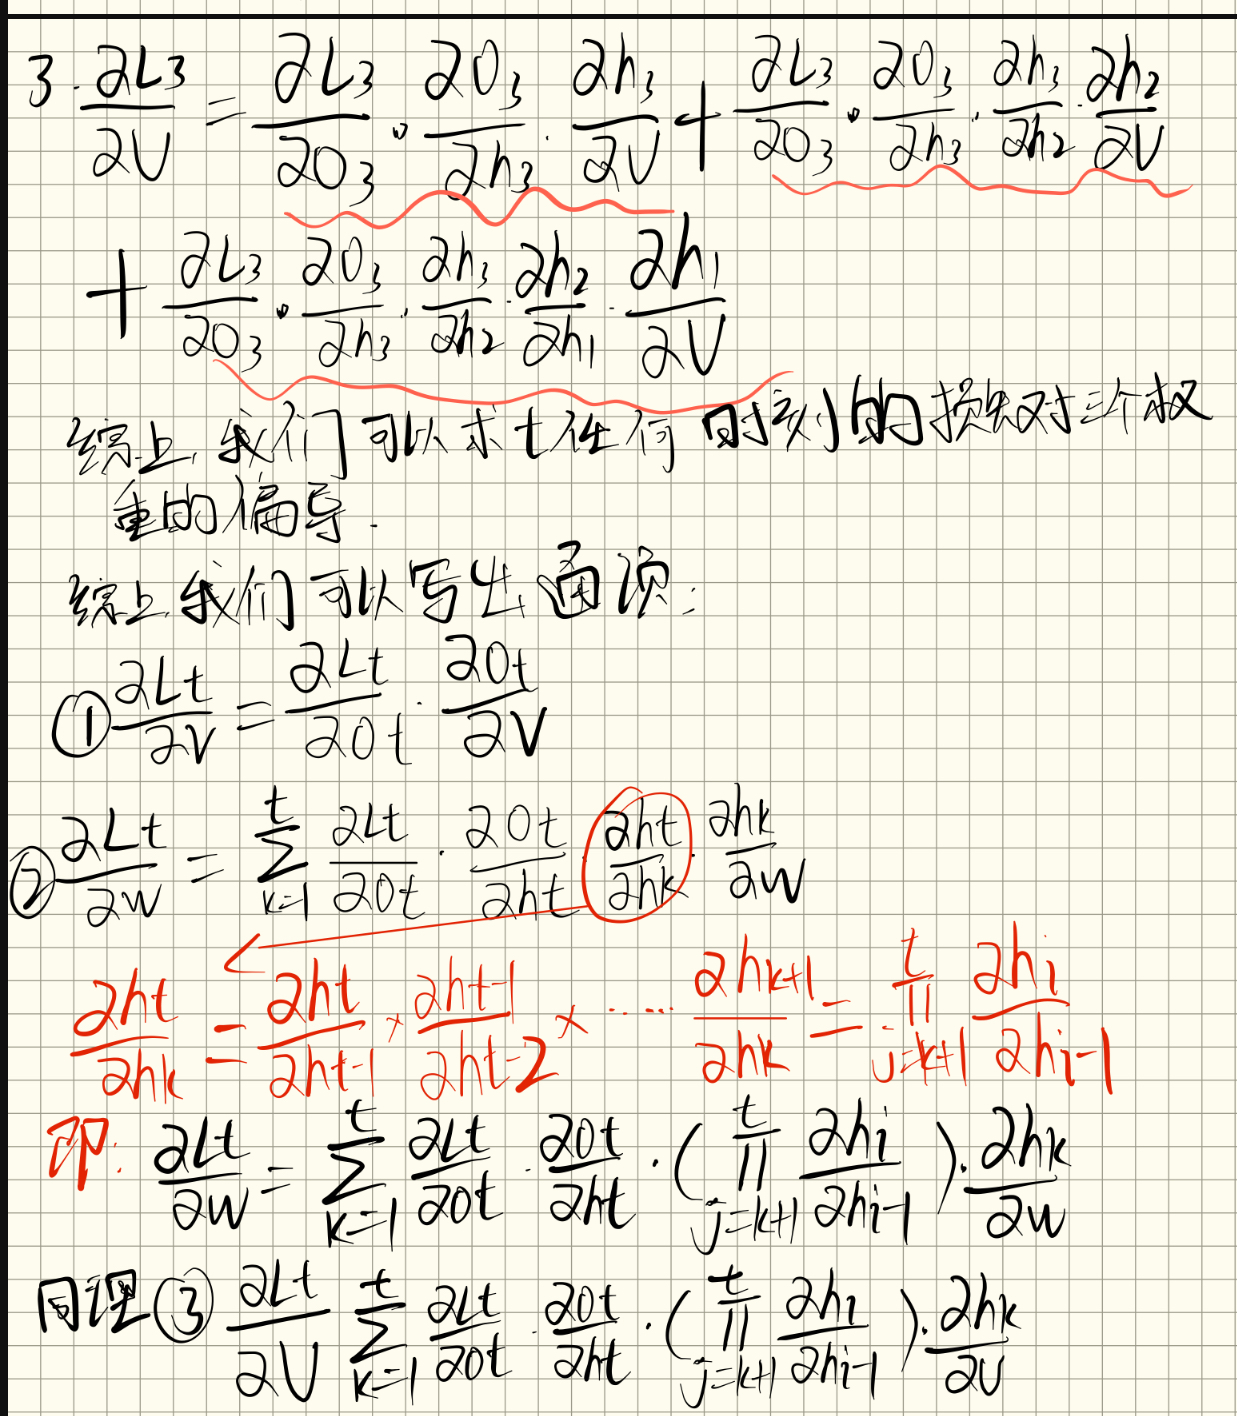 3. ∂L3/∂U = ∂L3/∂O3 · ∂O3/∂h3 · ∂h3/∂U + ∂L3/∂O3 · ∂O3/∂h3 · ∂h3/∂h2 · ∂h2/∂U
+ ∂L3/∂O3 · ∂O3/∂h3 · ∂h3/∂h2 · ∂h2/∂h1 · ∂h1/∂U
综上,我们可以求t任何时刻的损失对三个权
重的偏导.
综上,我们可以写出通项:
① ∂Lt/∂V = ∂Lt/∂Ot · ∂Ot/∂V
② ∂Lt/∂w = ∑_{k=1}^{t} ∂Lt/∂Ot · ∂Ot/∂ht · ∂ht/∂hk · ∂hk/∂w
∂ht/∂hk = ∂ht/∂ht-1 × ∂ht-1/∂ht-2 × ...... ∂hk+1/∂hk = ∏_{j=k+1}^{t} ∂hi/∂hi-1
即: ∂Lt/∂w = ∑_{k=1}^{t} ∂Lt/∂Ot · ∂Ot/∂ht · (∏_{j=k+1}^{t} ∂hi/∂hi-1) · ∂hk/∂w
同理 ③ ∂Lt/∂U ∑_{k=1}^{t} ∂Lt/∂Ot · ∂Ot/∂ht · (∏_{j=k+1}^{t} ∂hi/∂hi-1) · ∂hk/∂U